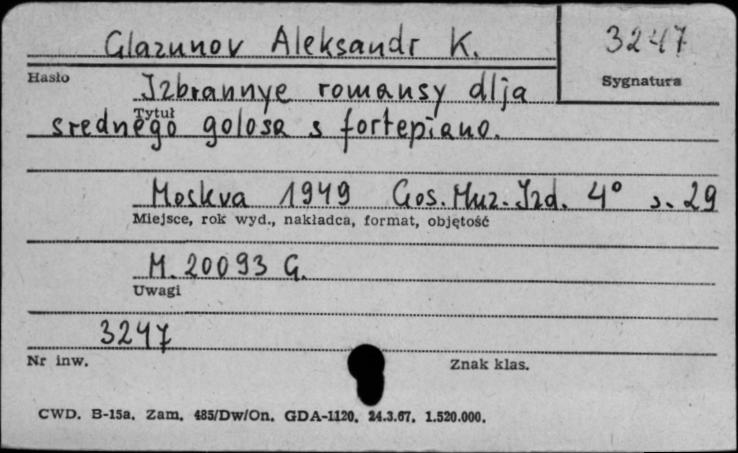 Glazunov Aleksandr K.
3247
Hasło
Sygnatura
Izbrannye romansy dlja
Tytuł
srednego golosa s fortepiano.
Moskva 1949 Gos. Muz. Izd. 4° s. 29
Miejsce, rok wyd., nakładca, format, objętość
M. 20093 G.
Uwagi
3247
Nr inw.
Znak klas.
CWD. B-15a. Zam. 485/Dw/On. GDA-1120. 24.3.67. 1.520.000.